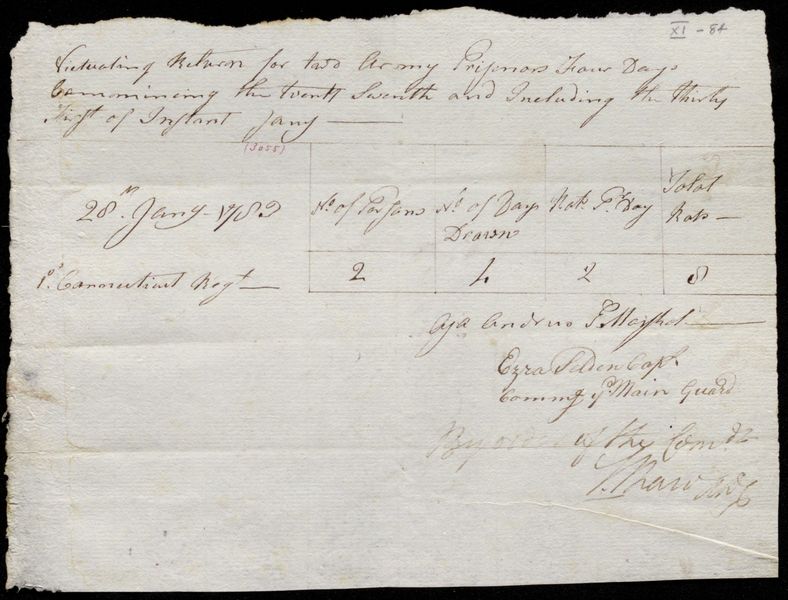 XI - 84
Victualing Return for two Army Prisnors Four Days
Commincing the twenty Sventh and Including the thirty
First of Instant Jany
(3055)
28th Jany - 1783
No of Persons
No of Days Drawn
Rats Pr Day
Total Rats -
1st Connecticut Regt
2
4
2
8
Asa Andrus P. Marshol
Ezra Selden Capt
Commg ye Main Guard
By order of the Comdt